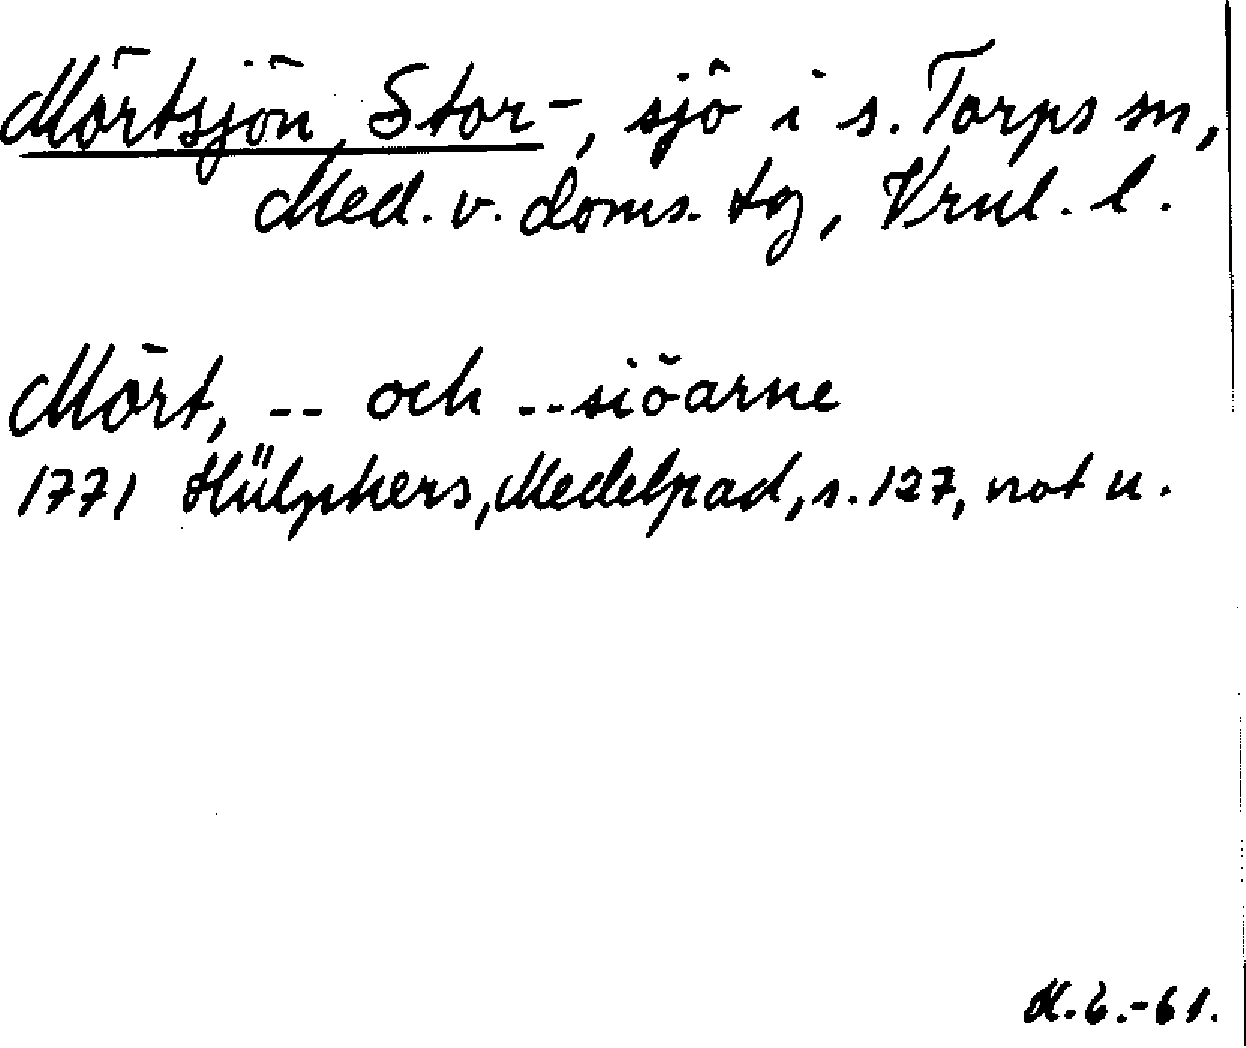 Mörtsjön, Stor-, sjö i s. Torps sn,
Med. v. doms. tg, Vrnl. l.
Mört, -- och --siöarne
1771 Hülphers, Medelpad, s. 127, not u.
M.G.-61.